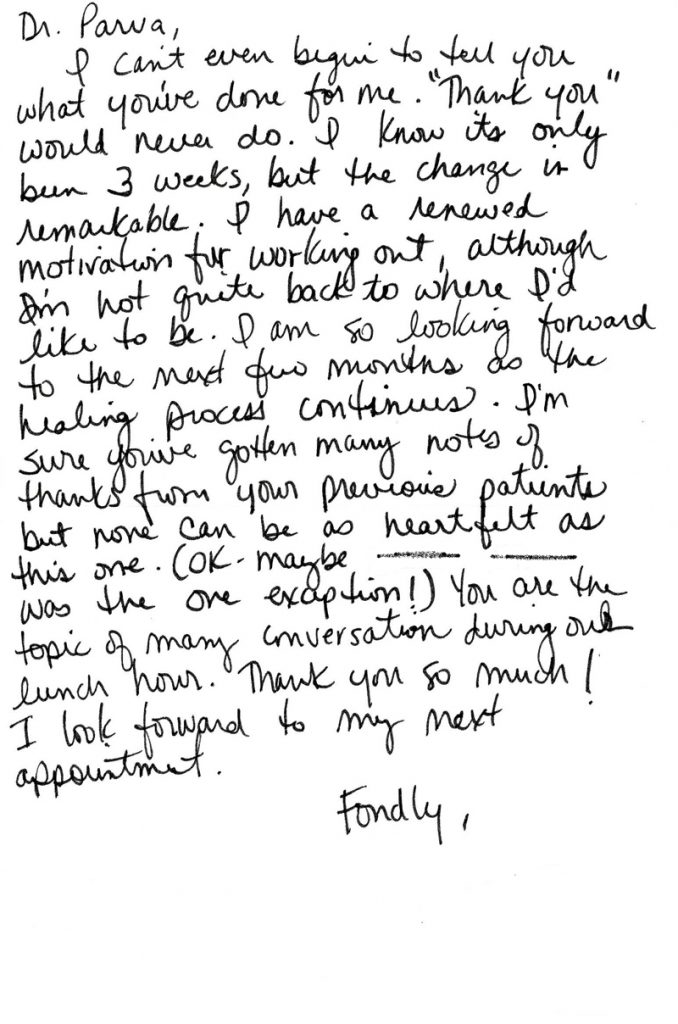 Dr. Parva,
I can't even begin to tell you
what you've done for me. "Thank you"
would never do. I know its only
been 3 weeks, but the change is
remarkable. I have a renewed
motivation for working out, although
I'm not quite back to where I'd
like to be. I am so looking forward
to the next few months as the
healing process continues. I'm
sure you've gotten many notes of
thanks from your previous patients
but none can be as heartfelt as
this one. (OK - maybe
was the one exception!) You are the
topic of many conversation during our
lunch hour. Thank you so much!
I look forward to my next
appointment.
Fondly,